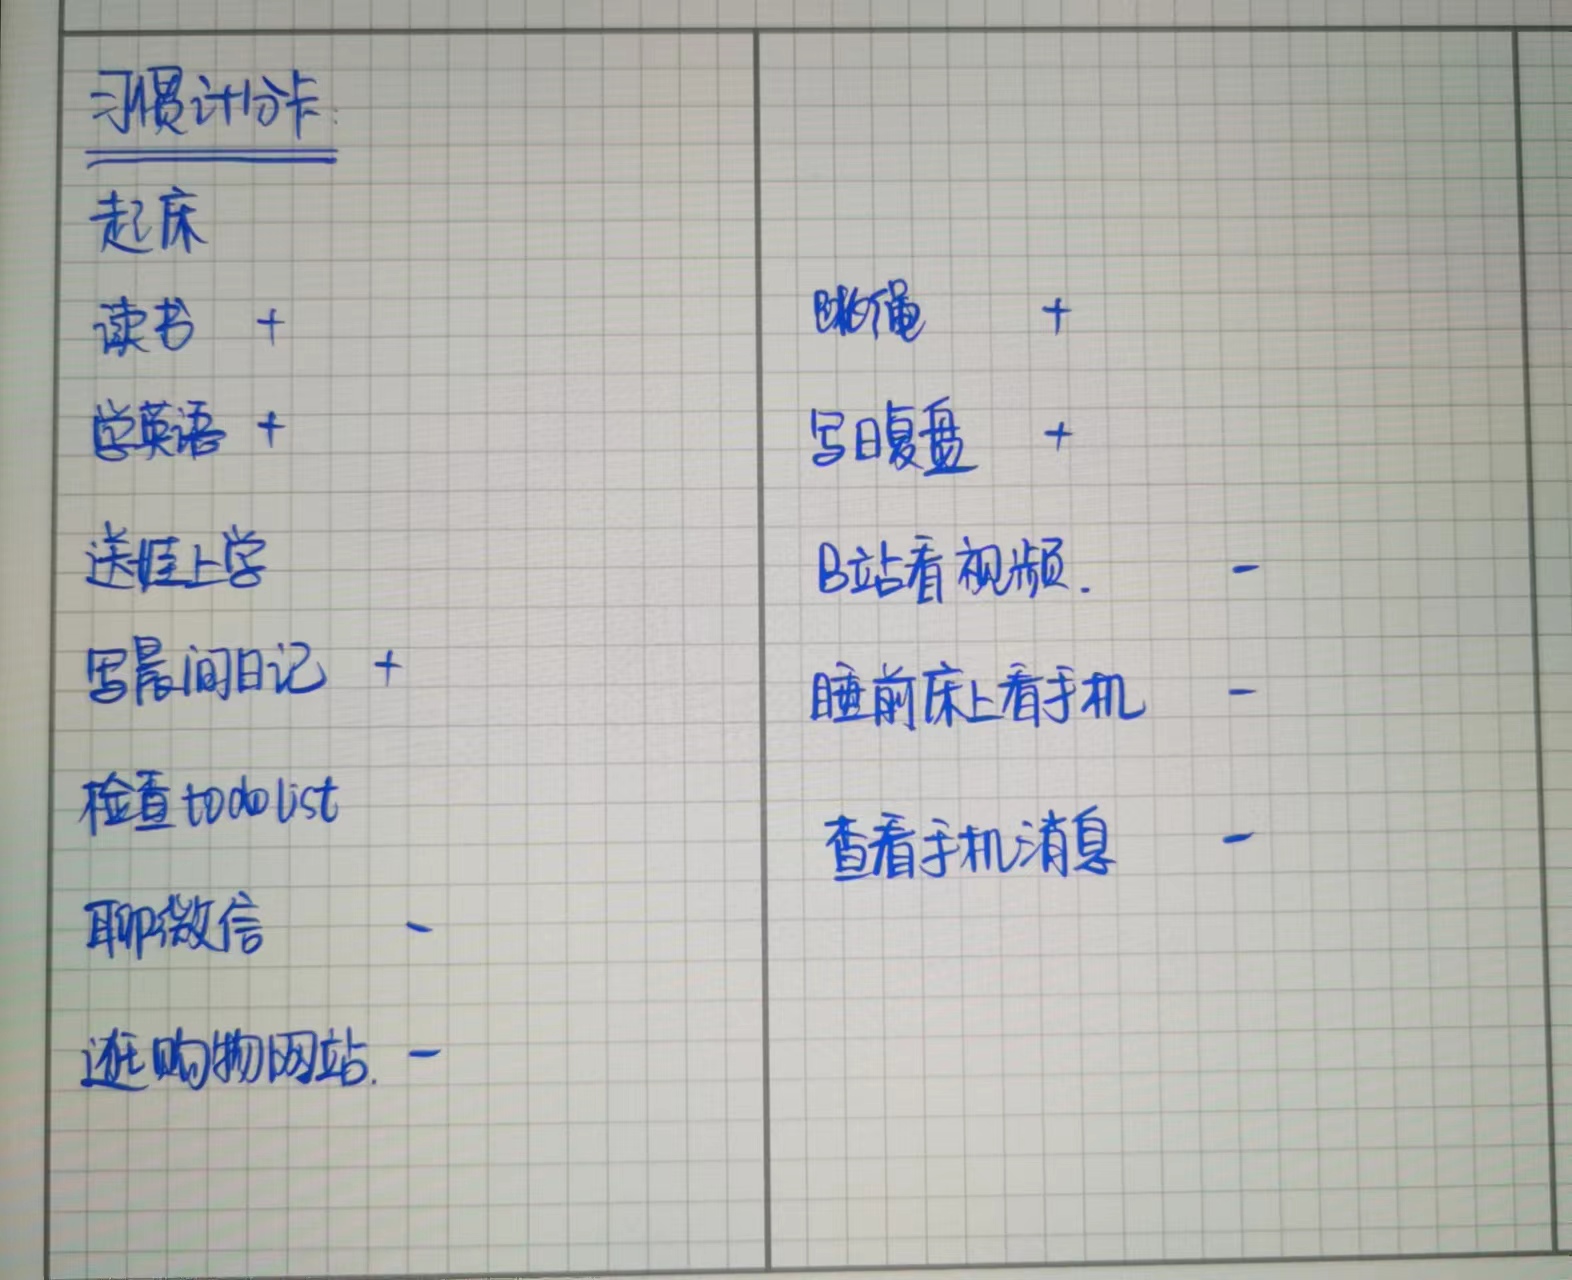 习惯计分卡:
起床
读书 +
学英语 +
送娃上学
写晨间日记 +
检查todolist
聊微信 -
逛购物网站. -
跳绳 +
写日复盘 +
B站看视频. -
睡前床上看手机 -
查看手机消息 -